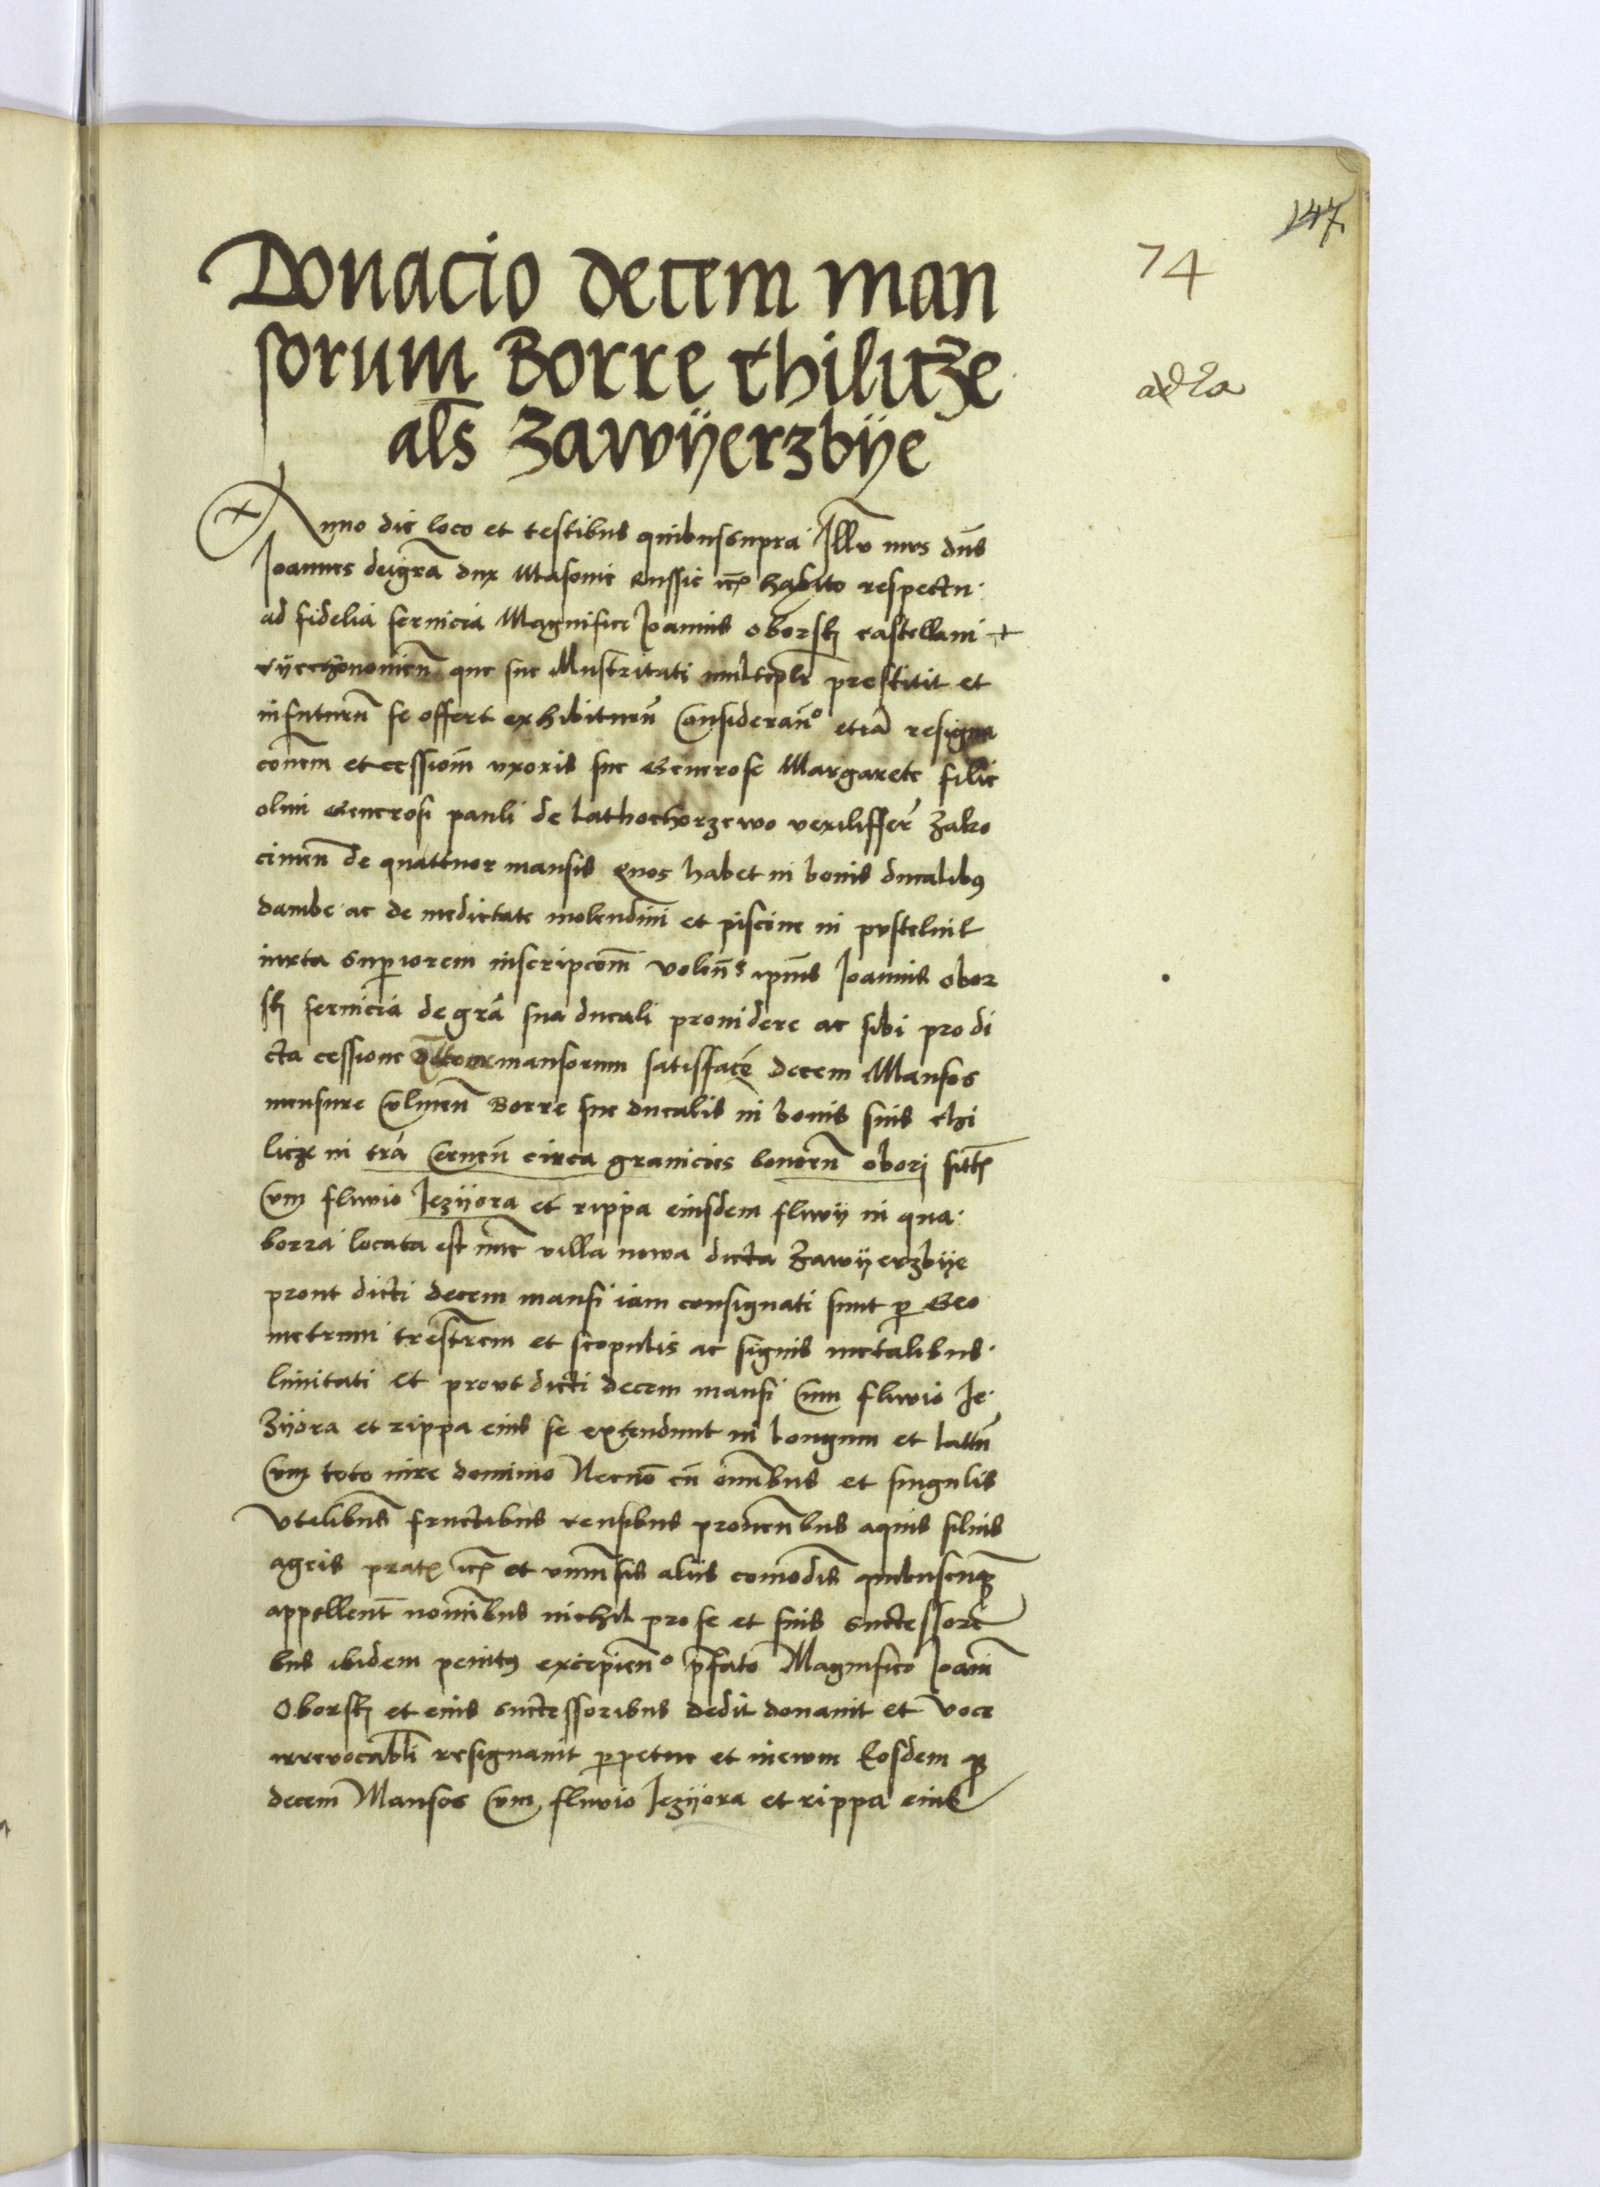 147
74
Donacio decem man
sorum Borre chilicze
als Zawyerzbye
adZa
Anno die loco et testibus quibus supra Illu mus dns
Joannes dei gra dux Masovie Russie etc habito respectu
ad fidelia servicia Magnifici Joannis oborsky castellani
que sue Illustritati multipli prestitit et
in futurum se offert exhibiturum Consideran etiam resigna
conem et cessionem uxoris sue Generose Margarete filie
olim Generosi pauli de Lathochorzewo vexilifferi Zakro
cimen de quattuor mansis quos habet in bonis ducalibus
dambe ac de medietate molendini et piscine in pustelnik
iuxta superiorem inscripcom volens ipius Joannis obor
sky servicia de gra sua ducali providere ac sibi pro di
cta cessione mansorum satisfacere decem Mansos
mensure Culmen Borre sue ducalis in bonis suis chi
licze in tra Cernen circa granicies bonorum obory sittos
Cum fluvio Jezyora et rippa eiusdem fluvy in qua
borra locata est nunc villa nowa dicta Zawyerzbye
prout dicti decem mansi iam consignati sunt per Geo
metrum trestrem et scopulis ac signis metalibus
limitati et prout dicti decem mansi Cum fluvio Je
zyora et rippa eius se extendunt in longum et latum
Cum toto iure dominio Necno cu omnibus et singulis
Utilibus fructibus censibus proventibus aquis silvis
agris pratis etc et universis aliis comodis quibuscunque
appellent nominibus nichil pro se et suis successori
bus ibidem penitus excipien prefato Magnifico Joanni
Oborsky et eius successoribus dedit donavit et voce
irrevocabili resignavit perpetue et in ewm Eosdem
decem Mansos Cum fluvio Jezyora et rippa eius